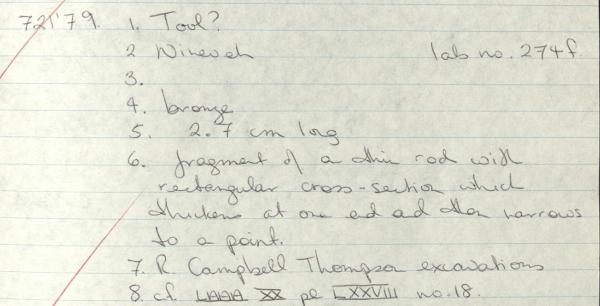 721'79. 1. Tool?
2 Nineveh lab no. 274f.
3.
4. bronze
5. 2.7 cm long
6. fragment of a thin rod with
rectangular cross-section which
thickens at one ed ad then narrows
to a point.
7. R. Campbell Thompson excavations
8. cf. LAAA XX pl LXXVIII no.18.